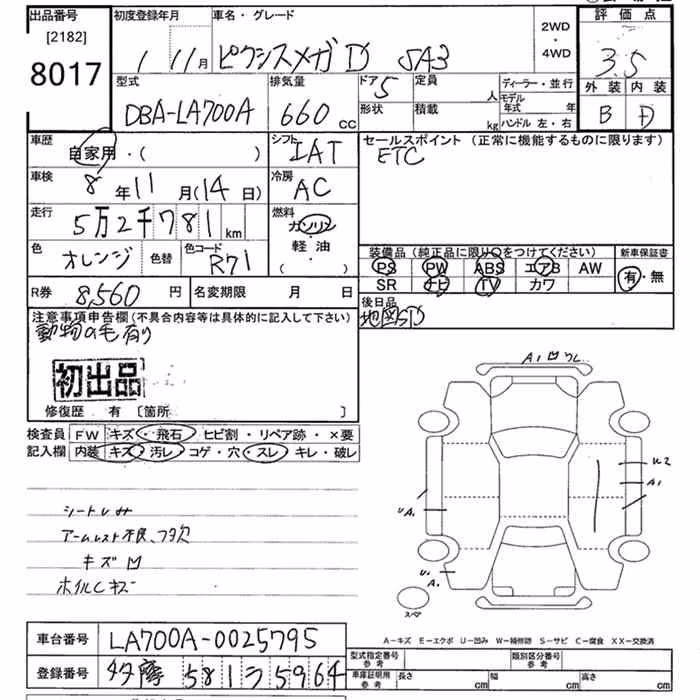 出品番号
[2182]
8017
初度登録年月
1 11月
車名・グレード
ピクシスメガD SA3
2WD
・
4WD
評価点
3.5
外装 内装
B D
型式
DBA-LA700A
排気量
660 cc
ドア 5
定員 人
形状
積載 kg
ディーラー・並行
モデル年式 年
ハンドル 左・右
車歴
自家用・( )
シフト
IAT
セールスポイント (正常に機能するものに限ります)
ETC
車検
8年11月(14日)
冷房
AC
走行
5万2千781km
燃料
ガソリン
軽油
・( )
色
オレンジ
色替
色コード
R71
装備品(純正品に限り○をつけてください)
PS PW ABS エアB AW
SR ナビ TV カワ
新車保証書
有・無
R券 8,560円
名変期限 月 日
後日品
地図SD
注意事項申告欄(不具合内容等は具体的に記入して下さい)
動物の毛有り
初出品
修復歴 有 [箇所 ]
検査員記入欄
FW キズ・飛石・ヒビ割・リペア跡・×要
内装 キズ・汚レ・コゲ・穴・スレ・キレ・破レ
シートしみ
アームレスト不良、フタ欠
キズ凹
ホイルCキズ
A1 凹 ワレ
U2
A1
UA1
U1
A1
スペア
A-キズ E-エクボ U-凹み W-補修跡 S-サビ C-腐食 XX-交換済
車台番号
LA700A-0025795
登録番号
多摩 581 う 5964
型式指定番号
参考
類別区分番号
参考
車庫証明用
参考
長さ cm
幅 cm
高さ cm